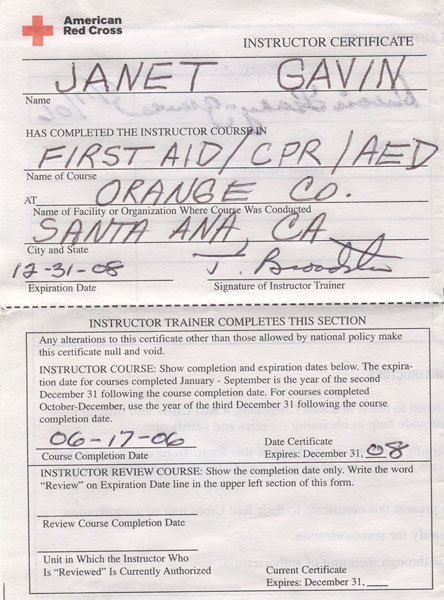 American
Red Cross
INSTRUCTOR CERTIFICATE
JANET GAVIN
Name
HAS COMPLETED THE INSTRUCTOR COURSE IN
FIRST AID/CPR/AED
Name of Course
AT ORANGE CO.
Name of Facility or Organization Where Course Was Conducted
SANTA ANA, CA
City and State
12-31-08 J.
Expiration Date Signature of Instructor Trainer
INSTRUCTOR TRAINER COMPLETES THIS SECTION
Any alterations to this certificate other than those allowed by national policy make
this certificate null and void.
INSTRUCTOR COURSE: Show completion and expiration dates below. The expira-
tion date for courses completed January - September is the year of the second
December 31 following the course completion date. For courses completed
October-December, use the year of the third December 31 following the course
completion date.
06-17-06 Date Certificate
Course Completion Date Expires: December 31, 08
INSTRUCTOR REVIEW COURSE: Show the completion date only. Write the word
“Review” on Expiration Date line in the upper left section of this form.
Review Course Completion Date
Unit in Which the Instructor Who
Is “Reviewed” Is Currently Authorized
Current Certificate
Expires: December 31, ___